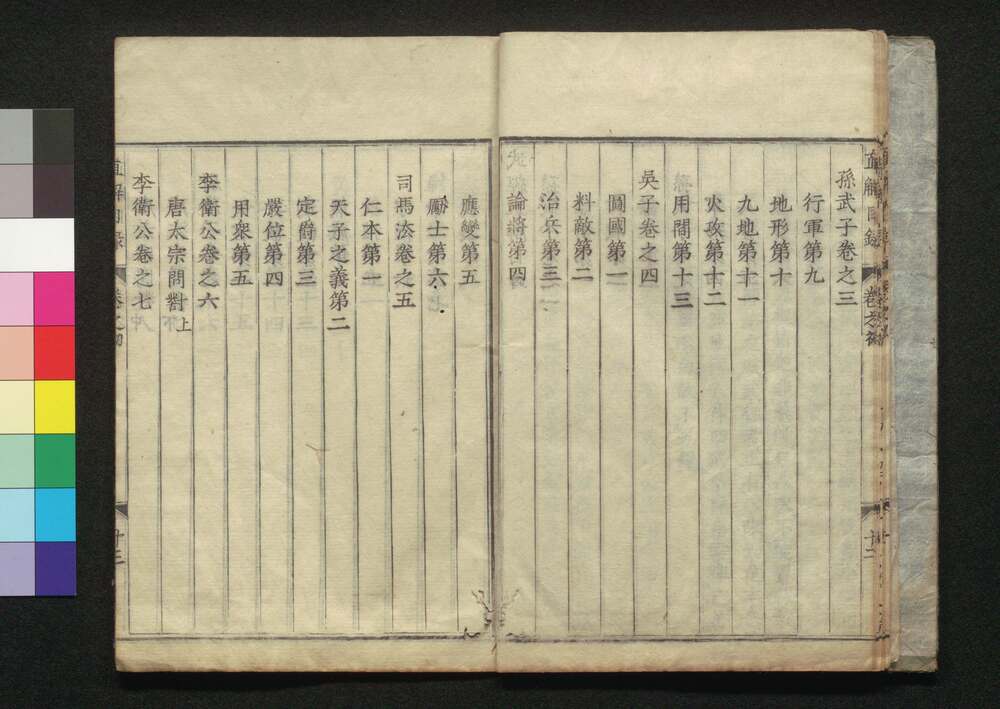 孫武子卷之三
行軍第九
地形第十
九地第十一
火攻第十二
用間第十三
吳子卷之四
圖國第一
料敵第二
治兵第三
論將第四
直解目錄 卷之初 十二
應變第五
勵士第六
司馬法卷之五
仁本第一
天子之義第二
定爵第三
嚴位第四
用衆第五
李衛公卷之六
唐太宗問對上
李衛公卷之七
直解目錄 卷之初 十三